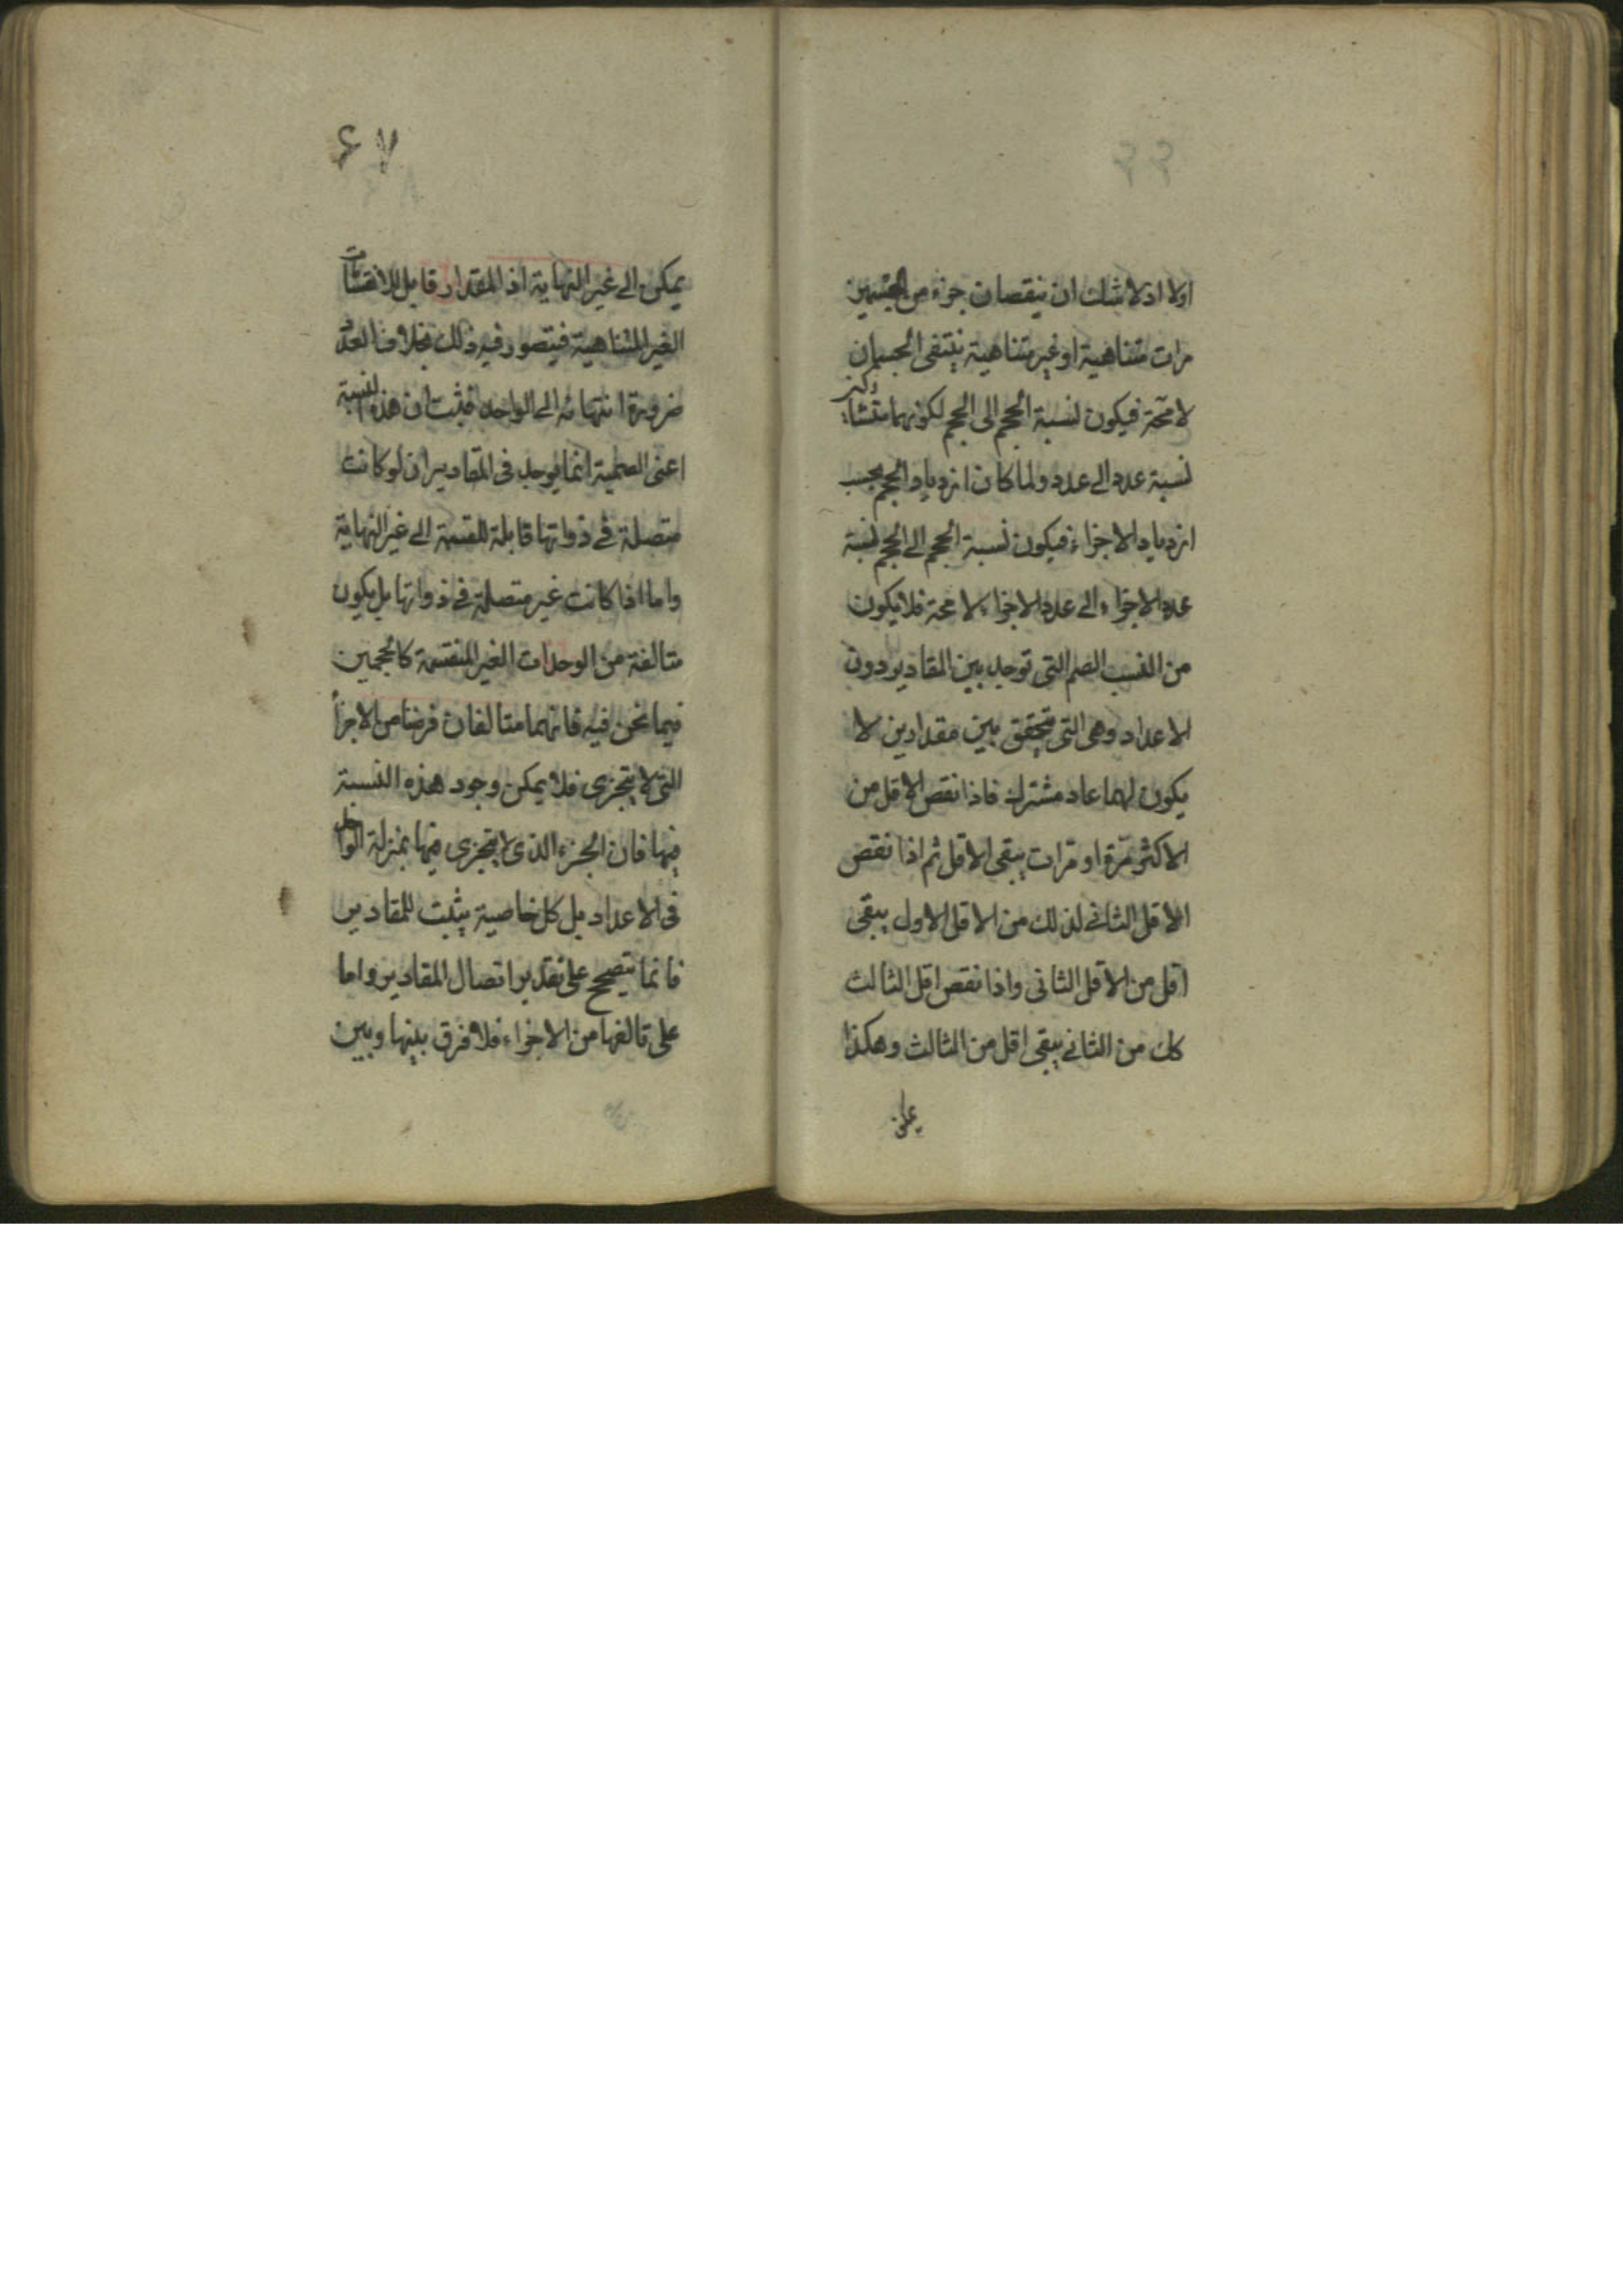 اولا اذ لا شك ان بنقصان جزء من الجسمين
مرات متناهية او غير متناهية ينتفى الجسمان
لا محة فيكون نسبة الحجم الى الحجم لكونهما متشاركين
نسبة عدد الى عدد ولما كان ازدياد الحجم بحسب
ازدياد الاجزاء فيكون نسبة الحجم الى الحجم نسبة
عدد الاجزاء الى عدد الاجزاء لا محة فلا يكون
من النسب الصم التى توجد بين المقادير دون
الاعداد وهى التى تتحقق بين مقدارين لا
يكون لهما عاد مشترك فاذا نقص الاقل من
الاكثر مرة او مرات يبقى الاقل ثم اذا نقص
الاقل الثانى كذلك من الاقل الاول يبقى
اقل من الاقل الثانى واذا نقص اقل الثالث
كك من الثانى يبقى اقل من الثالث وهكذا
۶۷
يمكن الى غير النهاية اذ المقدار قابل للانقسامات
الغير المتناهية فيتصور فيه ذلك بخلاف العدد
ضرورة انتهائه الى الواحد فثبت ان هذه النسبة
اعنى الصمية انما يوجد فى المقادير ان لو كانت
متصلة فى ذواتها قابلة للقسمة الى غير النهاية
واما اذا كانت غير متصلة فى ذواتها بل يكون
متالفة من الوحدات الغير المنقسمة كالحجمين
فيما نحن فيه فانهما متالفان فرضا من الاجزأ
التى لا يتجزى فلا يمكن وجود هذه النسبة
فيها فان الجزء الذى لا يتجزى فيها بمنزلة الواحد
فى الاعداد بل كل خاصية يثبت للمقادير
فانما يتصحح على تقدير اتصال المقادير واما
على تالفها من الاجزاء فلا فرق بينها وبين